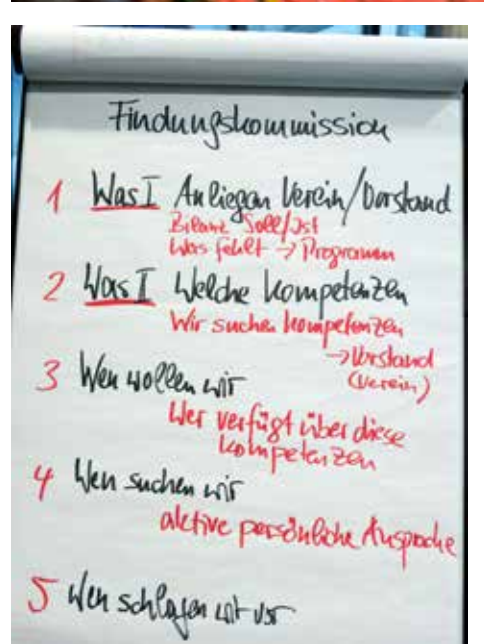 Findungskommission
1 Was I Anliegen Verein/Vorstand
Bilanz Soll/Ist
Was fehlt → Programm
2 Was I Welche Kompetenzen
Wir suchen Kompetenzen
→ Vorstand
(Verein)
3 Wen wollen wir
Wer verfügt über diese
Kompetenzen
4 Wen suchen wir
aktive persönliche Ansprache
5 Wen schlagen wir vor